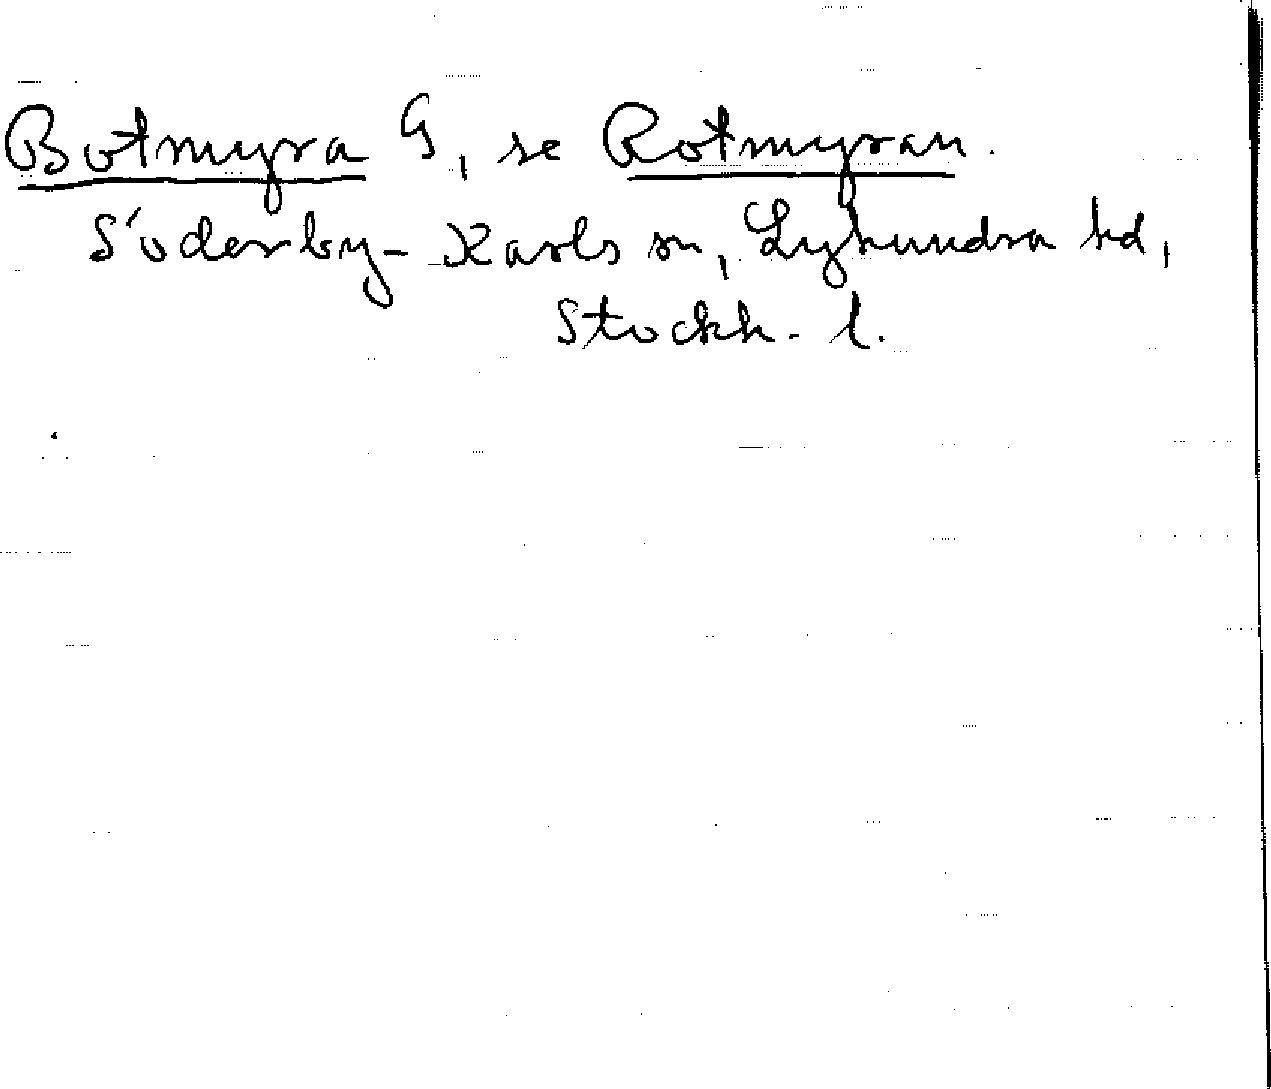 Botmyra G, se Rotmyran.
Söderby-Karls sn, Lyhundra hd,
Stockh. l.